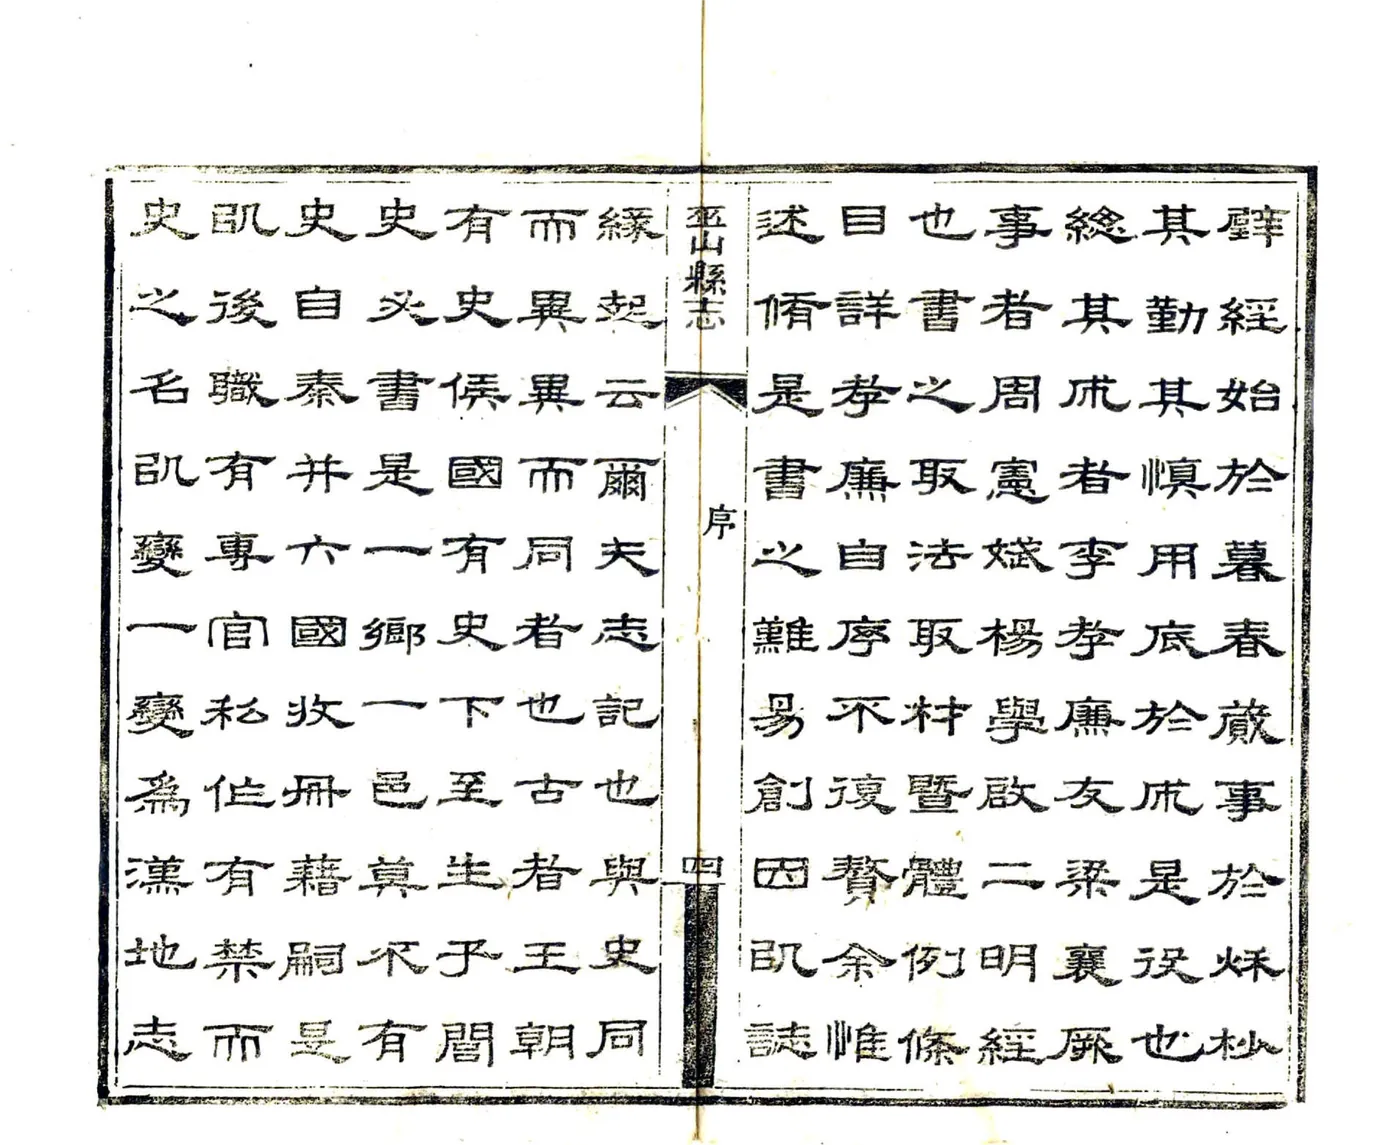 璧經始於暮春蕆事於秌杪
其勤其慎用底於成是役也
總其成者李孝廉友梁襄厥
事者周憲斌楊學啟二明經
也書之取法取材暨體例條
目詳孝廉自序不復贅余惟
述脩是書之難易創因即誌
巫山縣志
序
四
緣起云爾夫志記也與史同
而異異而同者也古者王朝
有史侯國有史下至生子閭
史必書是一鄉一邑莫不有
史自秦并六國收冊藉嗣是
即後職有專官私作有禁而
史之名即變一變為漢地志